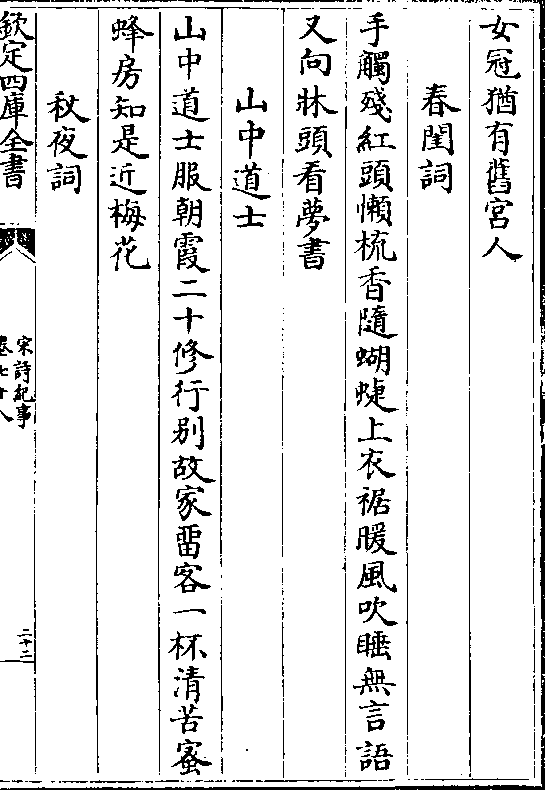 女冠猶有舊宮人
春閨詞
手觸殘紅頭懶梳香隨蝴蜨上衣裾暖風吹睡無言語
又向牀頭看夢書
山中道士
山中道士服朝霞二十修行别故家畱客一杯清苦蜜
蜂房知是近梅花
秋夜詞
欽定四庫全書
宋詩紀事
卷七十八
二十二